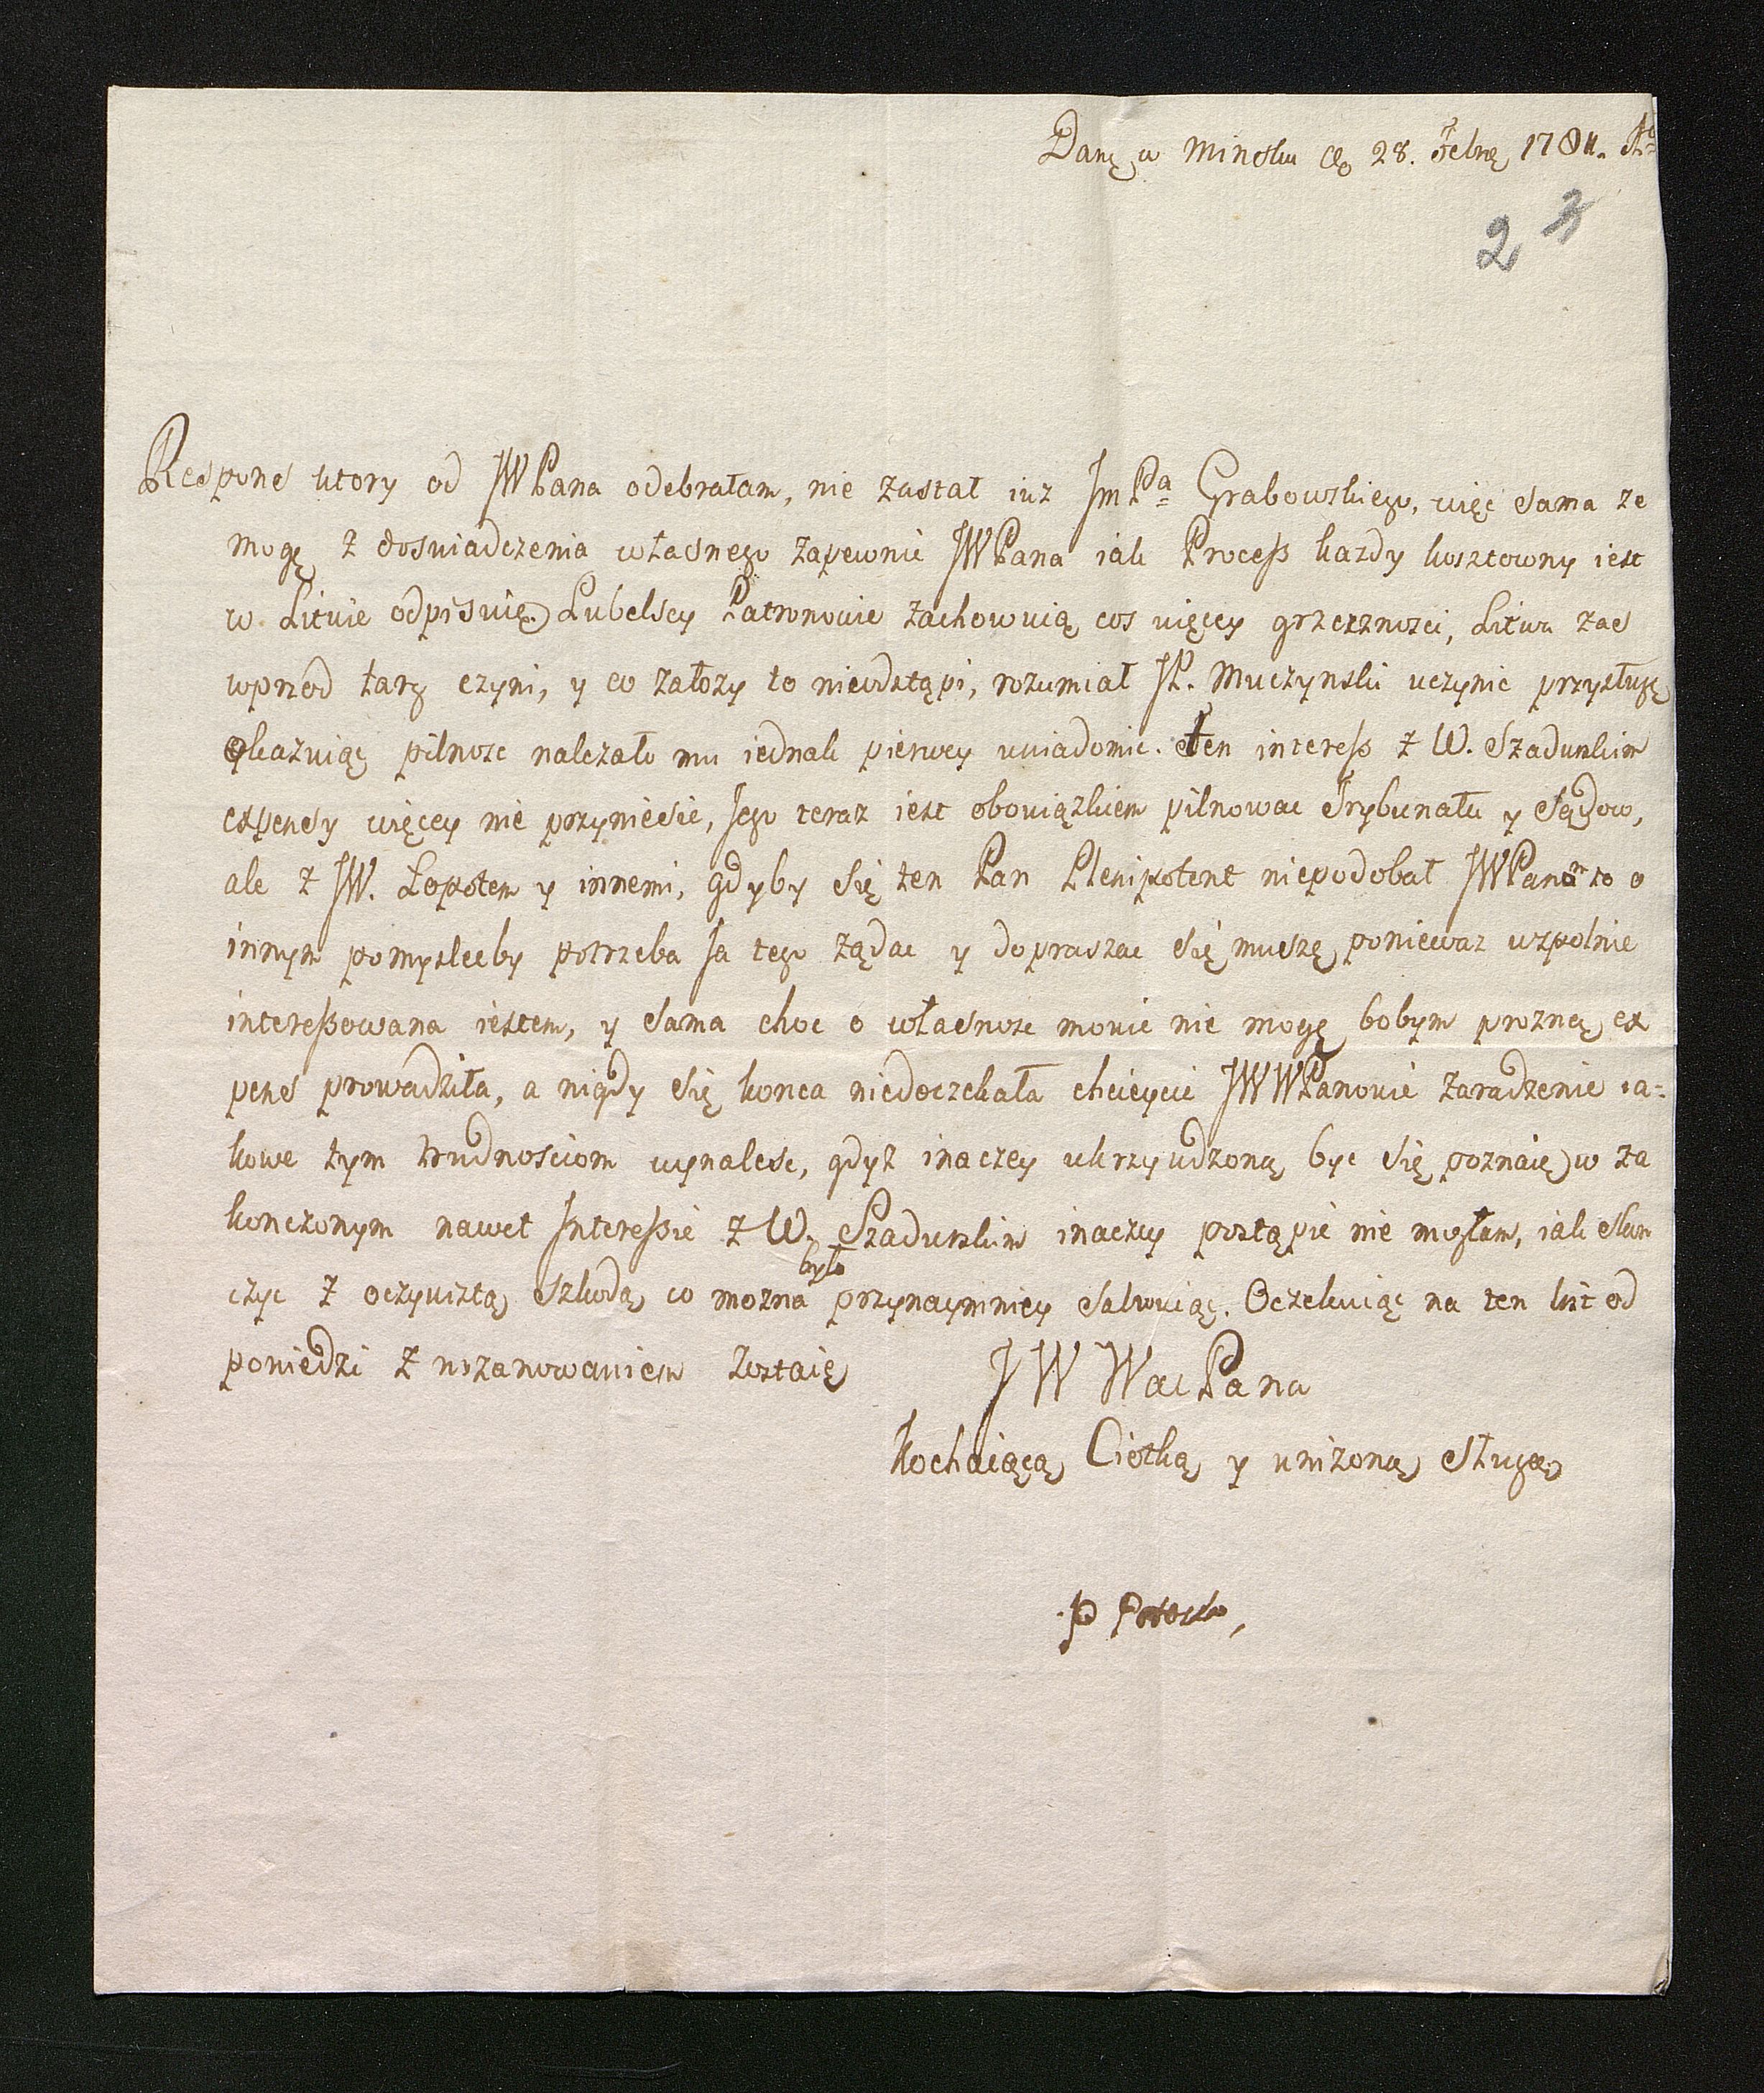 Danę w Mincku d. 28. Febrę 1784. Ro
2 3
Respons ktory od JWPana odebrałam, nie zastał iuz Jm Pa Grabowskiego, więc sama ze
mogę z doswiadczenia własnego zapewnic JWPana iak Process kazdy kosztowny iest
w Litwie odpisuię. Lubelscy Patronowie zachowuią cos więcey grzecznosci, Litwa zas
wprzod targ czyni, y co załozy to nieodstąpi, rozumiał JP. Muczynski uczynic przysługę
okazuiąc pilnosc nalezało mu iednak pierwey uwiadomic. Ten interess z W. Szadurskim
expensy więcey nie przyniesie, Jego teraz iest obowiązkiem pilnowac Trybunału y Sądow,
ale z JW. Łopotem y innemi, gdyby się ten Pan Plenipotent niepodobał JWPanu to o
innym pomyslecby potrzeba Ja tego ządac y dopraszac się muszę poniewaz wspolnie
interessowana iestem, y sama choc o własnosc mowic nie mogę bobym prozną ex
pens prowadziła, a nigdy się konca niedoczekała chcieycie JWWPanowie zaradzenie ia-
kowe tym trudnosciom wynalesc, gdyz inaczey ukrzywdzoną byc się poznaię w za
konczonym nawet Interessie z W. Szadurskim inaczey postąpic nie mogłam, iak skon
czyc z oczywistą szkodą co mozna było przynaymniey salwuiąc. Oczekuiąc na ten list od
powiedzi z uszanowaniem zostaię
JW WacPana
Kochaiącą Ciotką y unizoną sługą
P